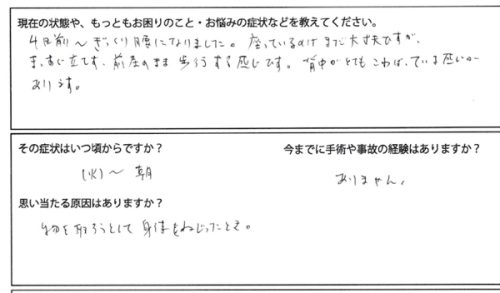 現在の状態や、もっともお困りのこと・お悩みの症状などを教えてください。
4日前〜ぎっくり腰になりました。座っているのはまだ大丈夫ですが、
まっすぐ立てず、前屈のまま歩行する感じです。背中がとてもこわばっている感じが
あります。
その症状はいつ頃からですか?
今までに手術や事故の経験はありますか?
(火)〜朝
ありません。
思い当たる原因はありますか?
物を取ろうとして身体をねじったとき。